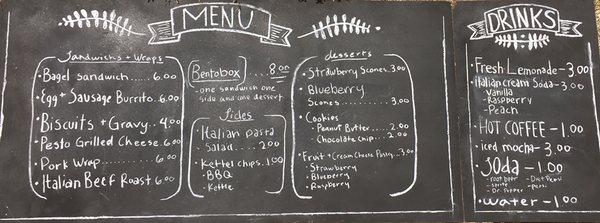 MENU
Sandwichs + Wraps
· Bagel sandwich..... 6.00
· Egg + Sausage Burrito. 6.00
· Biscuits + Gravy... 4.00
· Pesto Grilled Cheese. 6.00
· Pork Wrap........ 6.00
· Italian Beef Roast 6.00
Bentobox ....8.00
-one sandwich one
side and one dessert
Sides
· Italian pasta
Salad.... 2.00
· Kettel chips. 1.00
- BBQ
- Kettle
desserts
· Strawberry Scones. 3.00
· Blueberry
Scones........ 3.00
· Cookies
· Peanut Butter.... 2.00
· Chocolate chip... 2.00
· Fruit + Cream Cheese Pastry... 3.00
· Strawberry
· Blueberry
· Raspberry
DRINKS
· Fresh Lemonade - 3.00
· Italian cream Soda - 3.00
- Vanilla
- Raspberry
- Peach
· HOT COFFEE - 1.00
· iced mocha - 3.00
· Soda - 1.00
- root beer - Diet Pepsi
- sprite - pepsi
- Dr. Pepper
· water - 1.00